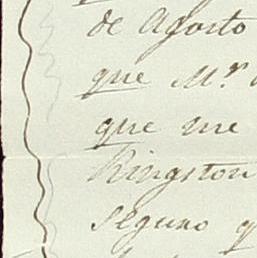 de Agosto
que M.r
que me
Kingston
seguro q